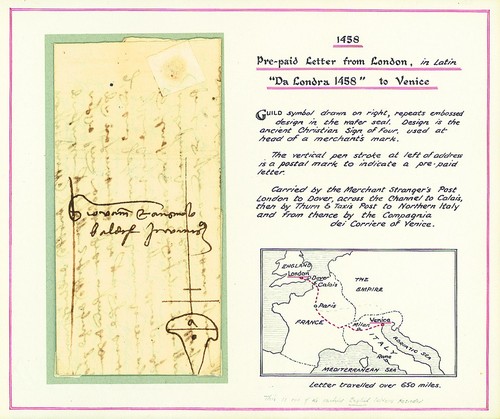 1458
Pre-paid Letter from London, in Latin
"Da Londra 1458" to Venice
GUILD symbol drawn on right, repeats embossed
design in the wafer seal. Design is the
ancient Christian Sign of Four, used at
head of a merchant's mark.
The vertical pen stroke at left of address
is a postal mark to indicate a pre-paid
letter.
Carried by the Merchant Stranger's Post
London to Dover, across the Channel to Calais,
then by Thurn & Taxis Post to Northern Italy
and from thence by the Compagnia
dei Corriere of Venice.
ENGLAND
London
Dover
Calais
THE
EMPIRE
Paris
FRANCE
Milan
Venice
ITALY
ADRIATIC SEA
Rome
MEDITERRANEAN SEA
Letter travelled over 650 miles.
This is one of the earliest English letters recorded